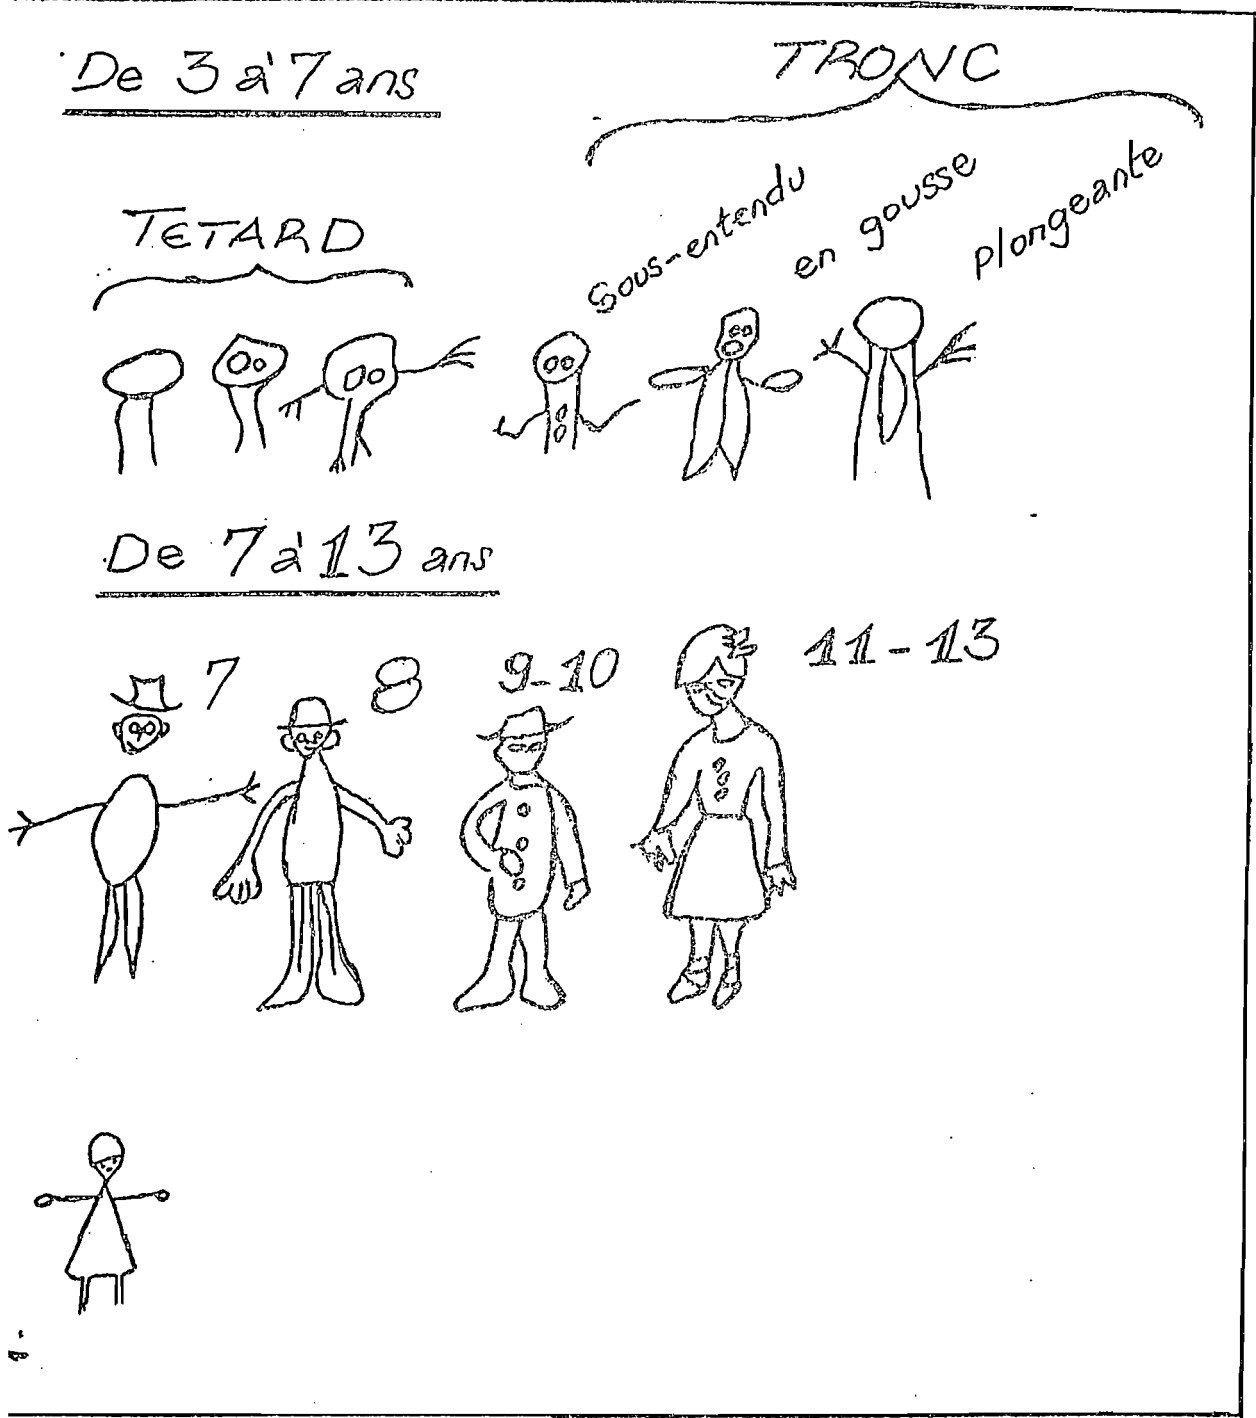 De 3 à 7 ans
TRONC
TETARD
Sous-entendu
en gousse
plongeante
De 7 à 13 ans
7
8
9-10
11-13